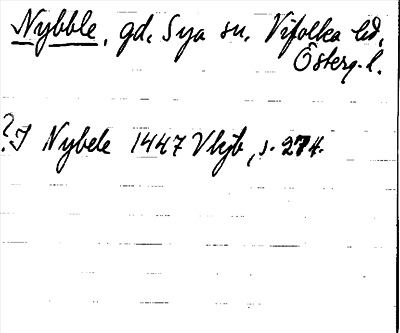 Nybble, gd, Sya sn, Vifolka hd,
Österg. l.
? I Nybele 1447 Vhjb, s. 274.